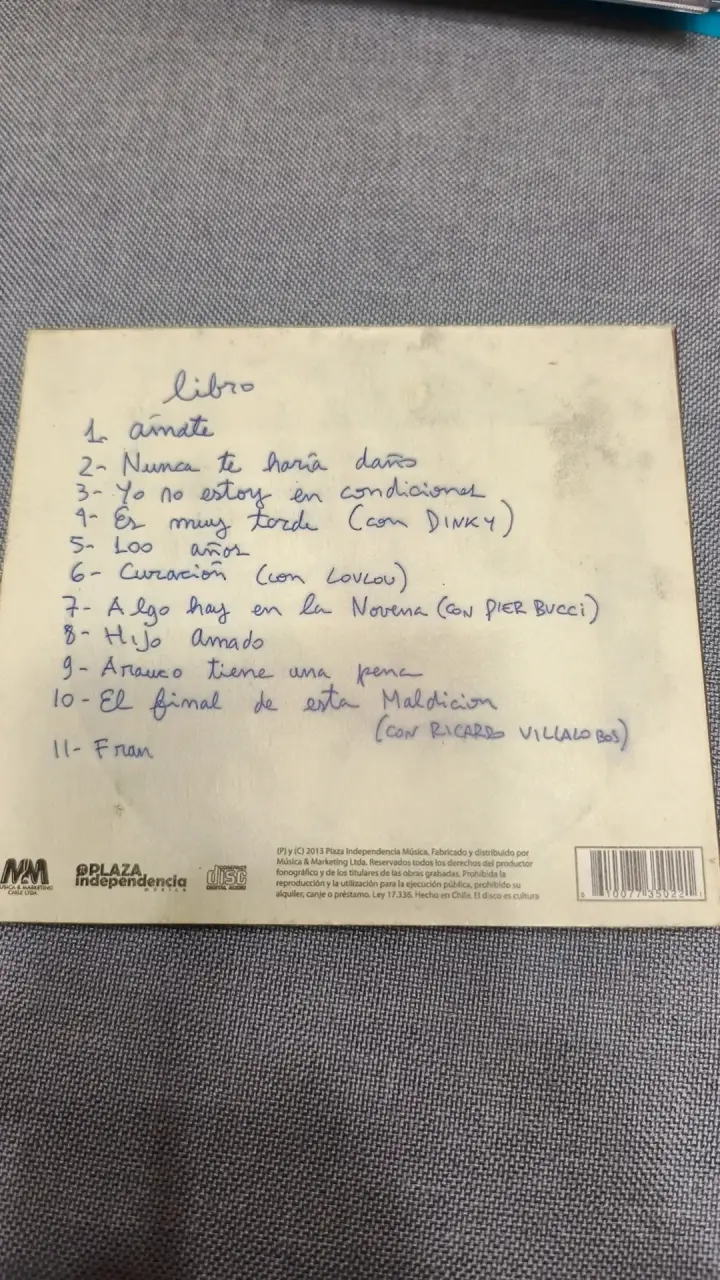 libro
1. ámate
2- Nunca te haría daño
3- Yo no estoy en condiciones
4- Es muy tarde (con DINKY)
5- 100 años
6- Curación (con LOULOU)
7- Algo hay en la Novena (CON PIER BUCCI)
8- Hijo amado
9- Arauco tiene una pena
10- El final de esta Maldicion
(CON RICARDO VILLALOBOS)
11- Fran
MM
MÚSICA & MARKETING
CHILE LTDA.
PLAZA
independencia
MÚSICA
COMPACT
disc
DIGITAL AUDIO
(P) y (C) 2013 Plaza Independencia Música. Fabricado y distribuido por
Música & Marketing Ltda. Reservados todos los derechos del productor
fonográfico y de los titulares de las obras grabadas. Prohibida la
reproducción y la utilización para la ejecución pública, prohibido su
alquiler, canje o préstamo. Ley 17.336. Hecho en Chile. El disco es cultura